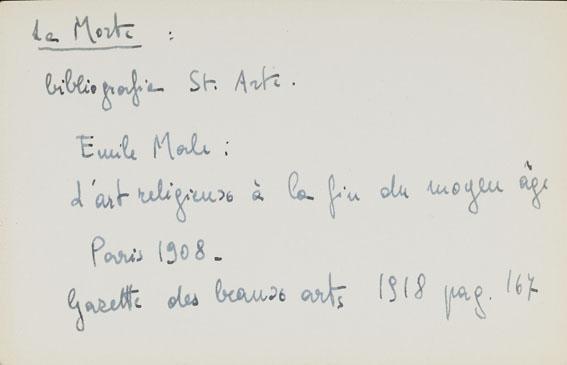 La Morte :
bibliografia St. Arte.
Emile Male :
L'art religieux à la fin du moyen âge
Paris 1908 -
Gazette des beaux arts 1918 pag. 167